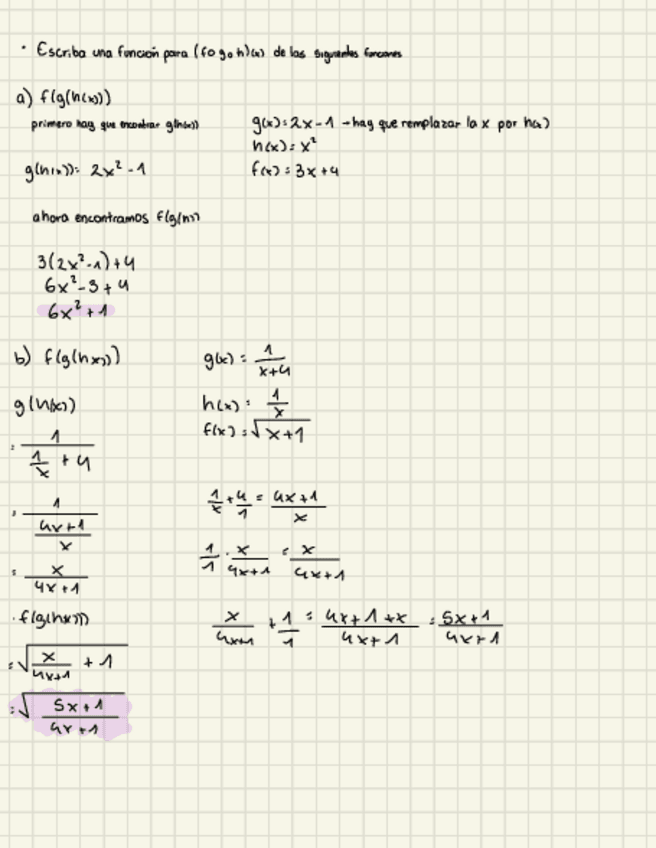 · Escriba una función para (f o g o h)(x) de las siguientes funciones
a) f(g(h(x)))
primero hay que encontrar g(h(x))
g(x) = 2x - 1 → hay que remplazar la x por h(x)
h(x) = x²
g(h(x)) = 2x² - 1
f(x) = 3x + 4
ahora encontramos f(g(h))
3(2x² - 1) + 4
6x² - 3 + 4
6x² + 1
b) f(g(hx)))
g(x) = 1/(x+4)
g(h(x))
h(x) = 1/x
f(x) = √(x+1)
= 1/(1/x + 4)
= 1/((4x+1)/x)
1/x + 4/1 = (4x+1)/x
= x/(4x+1)
1/1 · x/(4x+1) = x/(4x+1)
· f(g(hx)))
x/(4x+1) + 1/1 = (4x+1+x)/(4x+1) = (5x+1)/(4x+1)
= √(x/(4x+1) + 1)
= √((5x+1)/(4x+1))